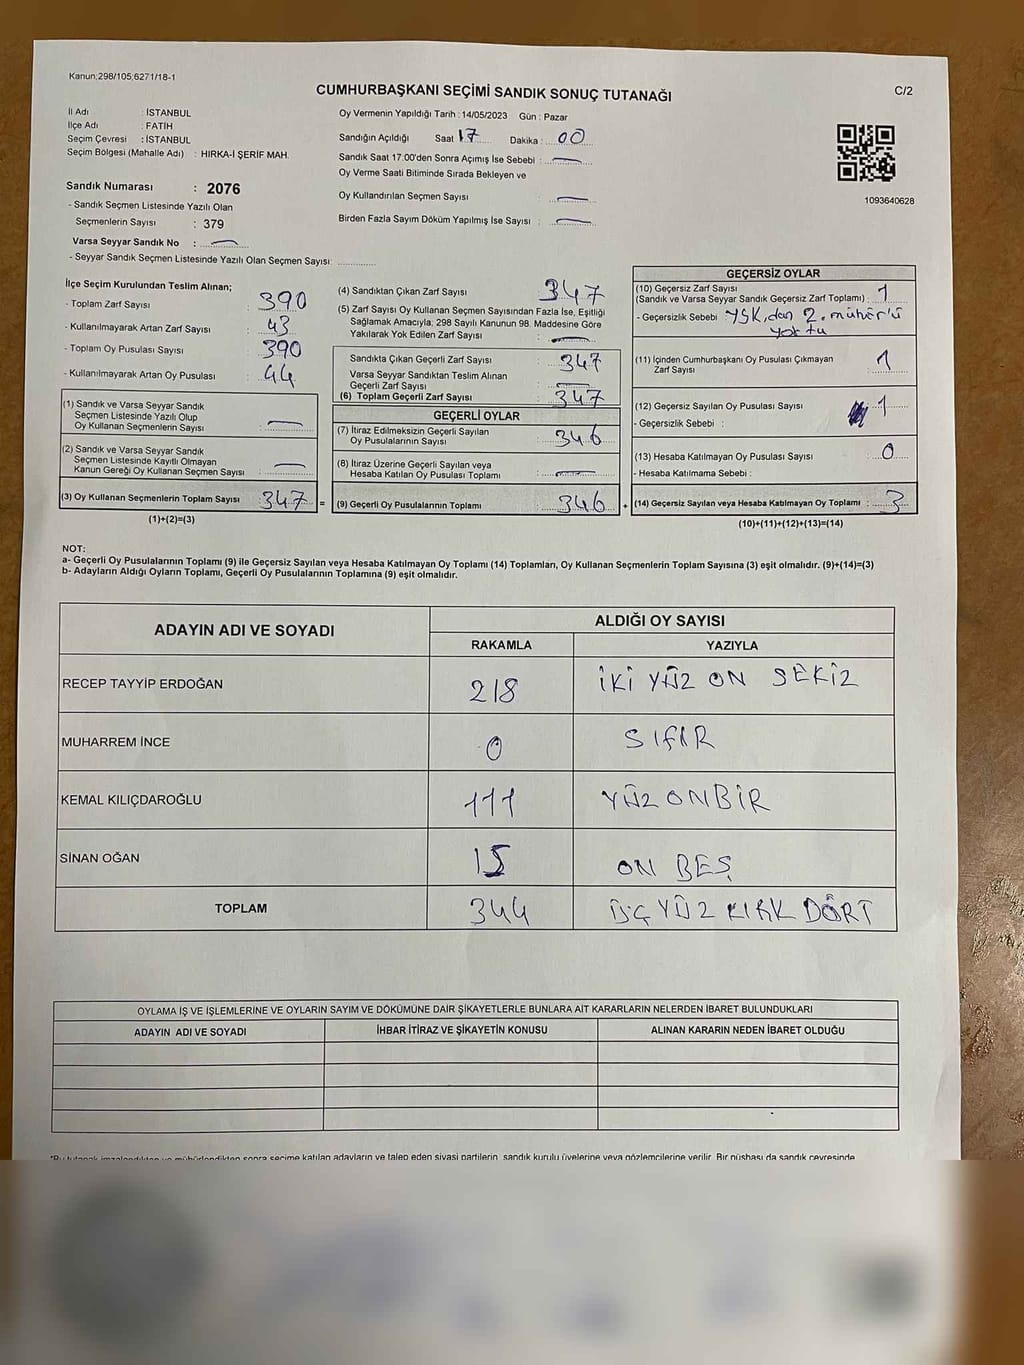 Kanun:298/105;6271/18-1
CUMHURBAŞKANI SEÇİMİ SANDIK SONUÇ TUTANAĞI
C/2
İl Adı : İSTANBUL
İlçe Adı : FATİH
Seçim Çevresi : İSTANBUL
Seçim Bölgesi (Mahalle Adı) : HIRKA-İ ŞERİF MAH.
Sandık Numarası : 2076
- Sandık Seçmen Listesinde Yazılı Olan
Seçmenlerin Sayısı : 379
Varsa Seyyar Sandık No : —
- Seyyar Sandık Seçmen Listesinde Yazılı Olan Seçmen Sayısı:
Oy Vermenin Yapıldığı Tarih : 14/05/2023 Gün : Pazar
Sandığın Açıldığı Saat : 17 Dakika : 00
Sandık Saat 17:00'den Sonra Açımış İse Sebebi : —
Oy Verme Saati Bitiminde Sırada Bekleyen ve
Oy Kullandırılan Seçmen Sayısı : —
Birden Fazla Sayım Döküm Yapılmış İse Sayısı : —
1093640628
İlçe Seçim Kurulundan Teslim Alınan;
- Toplam Zarf Sayısı : 390
- Kullanılmayarak Artan Zarf Sayısı : 43
- Toplam Oy Pusulası Sayısı : 390
- Kullanılmayarak Artan Oy Pusulası : 44
(1) Sandık ve Varsa Seyyar Sandık
Seçmen Listesinde Yazılı Olup
Oy Kullanan Seçmenlerin Sayısı : —
(2) Sandık ve Varsa Seyyar Sandık
Seçmen Listesinde Kayıtlı Olmayan
Kanun Gereği Oy Kullanan Seçmen Sayısı : —
(3) Oy Kullanan Seçmenlerin Toplam Sayısı : 347 =
(1)+(2)=(3)
(4) Sandıktan Çıkan Zarf Sayısı : 347
(5) Zarf Sayısı Oy Kullanan Seçmen Sayısından Fazla İse, Eşitliği
Sağlamak Amacıyla; 298 Sayılı Kanunun 98. Maddesine Göre
Yakılarak Yok Edilen Zarf Sayısı : —
Sandıkta Çıkan Geçerli Zarf Sayısı : 347
Varsa Seyyar Sandıktan Teslim Alınan
Geçerli Zarf Sayısı : —
(6) Toplam Geçerli Zarf Sayısı : 347
GEÇERLİ OYLAR
(7) İtiraz Edilmeksizin Geçerli Sayılan
Oy Pusulalarının Sayısı : 346
(8) İtiraz Üzerine Geçerli Sayılan veya
Hesaba Katılan Oy Pusulası Toplamı : —
(9) Geçerli Oy Pusulalarının Toplamı : 346 +
GEÇERSİZ OYLAR
(10) Geçersiz Zarf Sayısı
(Sandık ve Varsa Seyyar Sandık Geçersiz Zarf Toplamı) : 1
- Geçersizlik Sebebi : YSK,dan 2. mührü
yoktu
(11) İçinden Cumhurbaşkanı Oy Pusulası Çıkmayan
Zarf Sayısı : 1
(12) Geçersiz Sayılan Oy Pusulası Sayısı : 1
- Geçersizlik Sebebi :
(13) Hesaba Katılmayan Oy Pusulası Sayısı : 0
- Hesaba Katılmama Sebebi :
(14) Geçersiz Sayılan veya Hesaba Katılmayan Oy Toplamı : 3
(10)+(11)+(12)+(13)=(14)
NOT:
a- Geçerli Oy Pusulalarının Toplamı (9) ile Geçersiz Sayılan veya Hesaba Katılmayan Oy Toplamı (14) Toplamları, Oy Kullanan Seçmenlerin Toplam Sayısına (3) eşit olmalıdır. (9)+(14)=(3)
b- Adayların Aldığı Oyların Toplamı, Geçerli Oy Pusulalarının Toplamına (9) eşit olmalıdır.
ADAYIN ADI VE SOYADI
ALDIĞI OY SAYISI
RAKAMLA YAZIYLA
RECEP TAYYİP ERDOĞAN 218 İKİ YÜZ ON SEKİZ
MUHARREM İNCE 0 SIFIR
KEMAL KILIÇDAROĞLU 111 YÜZ ONBİR
SİNAN OĞAN 15 ON BEŞ
TOPLAM 344 ÜÇ YÜZ KIRK DÖRT
OYLAMA İŞ VE İŞLEMLERİNE VE OYLARIN SAYIM VE DÖKÜMÜNE DAİR ŞİKAYETLERLE BUNLARA AİT KARARLARIN NELERDEN İBARET BULUNDUKLARI
ADAYIN ADI VE SOYADI İHBAR İTİRAZ VE ŞİKAYETİN KONUSU ALINAN KARARIN NEDEN İBARET OLDUĞU
*Bu tutanak imzalandıktan ve mühürlendikten sonra seçime katılan adayların ve talep eden siyasi partilerin, sandık kurulu üyelerine veya gözlemcilerine verilir. Bir nüshası da sandık çevresinde